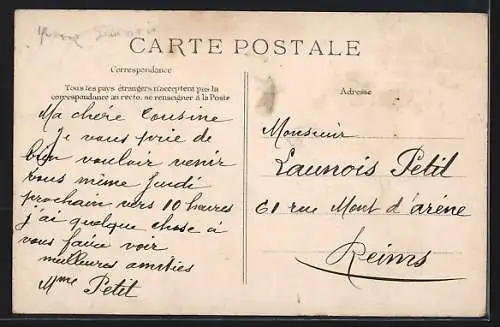 CARTE POSTALE
Correspondance
Tous les pays étrangers n'acceptent pas la
correspondance au recto, se renseigner à la Poste
Adresse
Ma chère Cousine
Je vous prie de
bien vouloir venir
vous même Jeudi
prochain vers 10 heures
j'ai quelque chose à
vous faire voir
meilleures amitiés
Mme Petit
Monsieur
Launois Petit
61 rue Mont d'arène
Reims